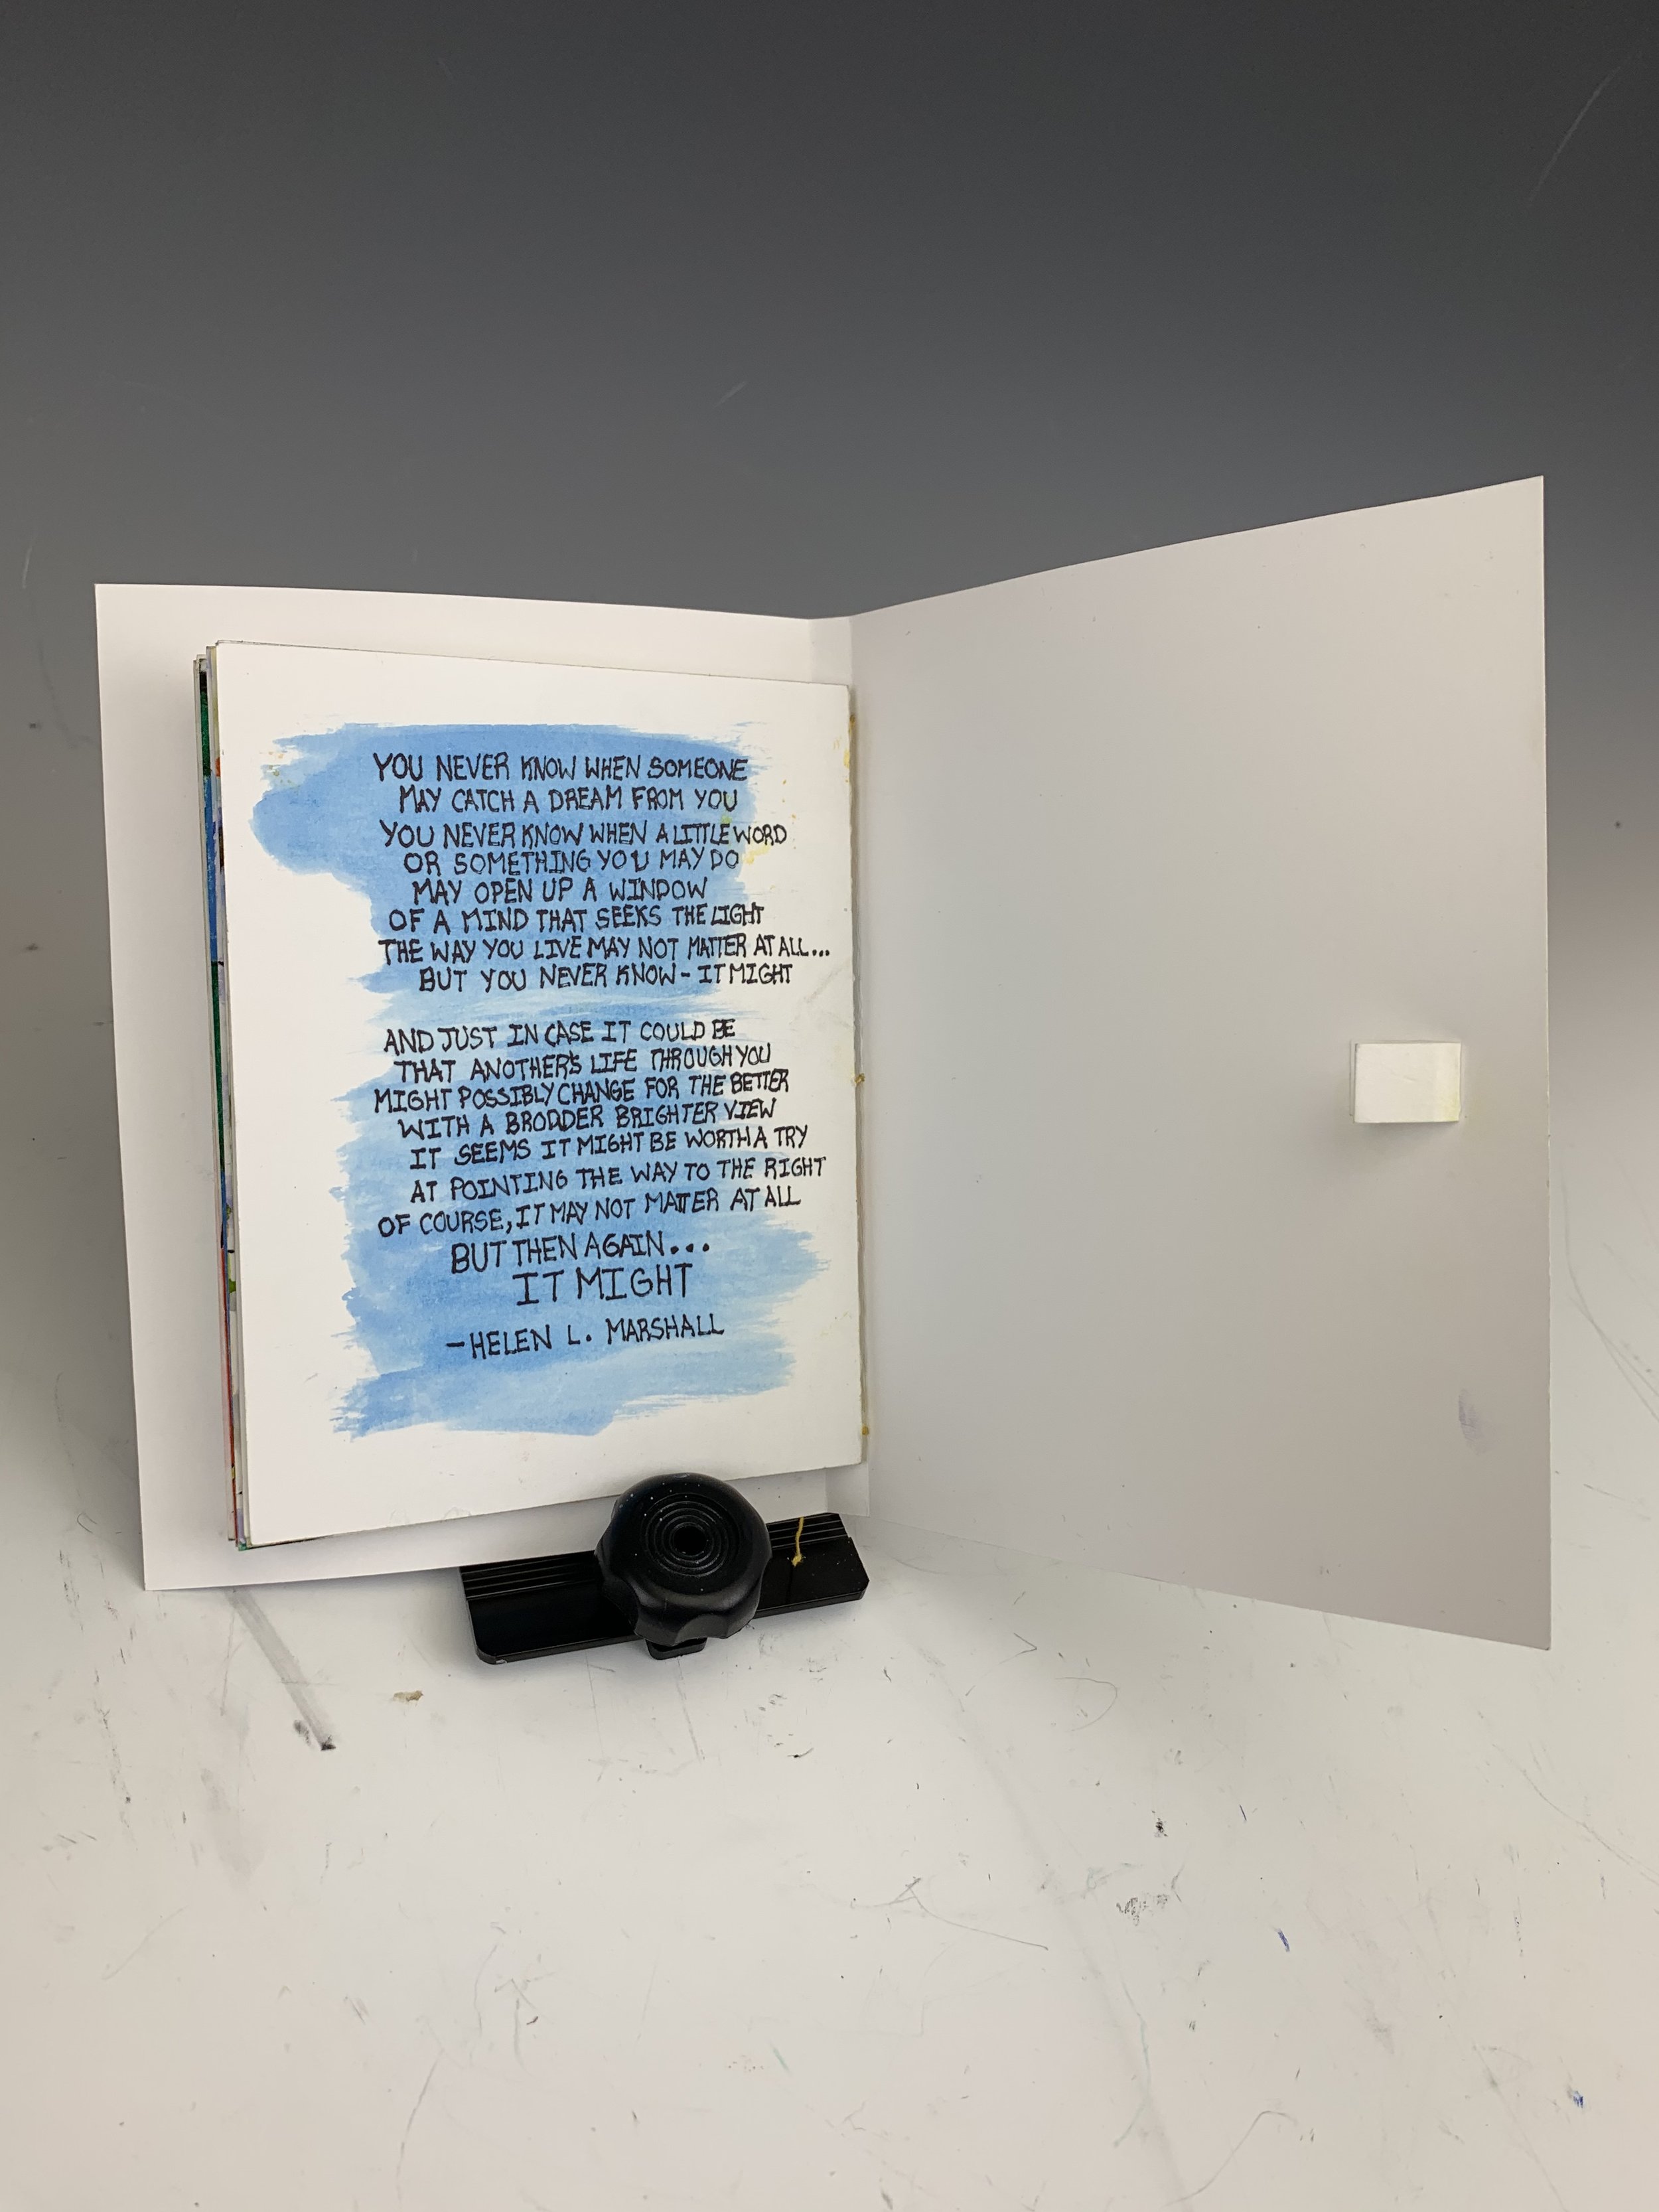 YOU NEVER KNOW WHEN SOMEONE
MAY CATCH A DREAM FROM YOU
YOU NEVER KNOW WHEN A LITTLE WORD
OR SOMETHING YOU MAY DO
MAY OPEN UP A WINDOW
OF A MIND THAT SEEKS THE LIGHT
THE WAY YOU LIVE MAY NOT MATTER AT ALL...
BUT YOU NEVER KNOW - IT MIGHT
AND JUST IN CASE IT COULD BE
THAT ANOTHER'S LIFE THROUGH YOU
MIGHT POSSIBLY CHANGE FOR THE BETTER
WITH A BRODDER BRIGHTER VIEW
IT SEEMS IT MIGHT BE WORTH A TRY
AT POINTING THE WAY TO THE RIGHT
OF COURSE, IT MAY NOT MATTER AT ALL
BUT THEN AGAIN...
IT MIGHT
-HELEN L. MARSHALL